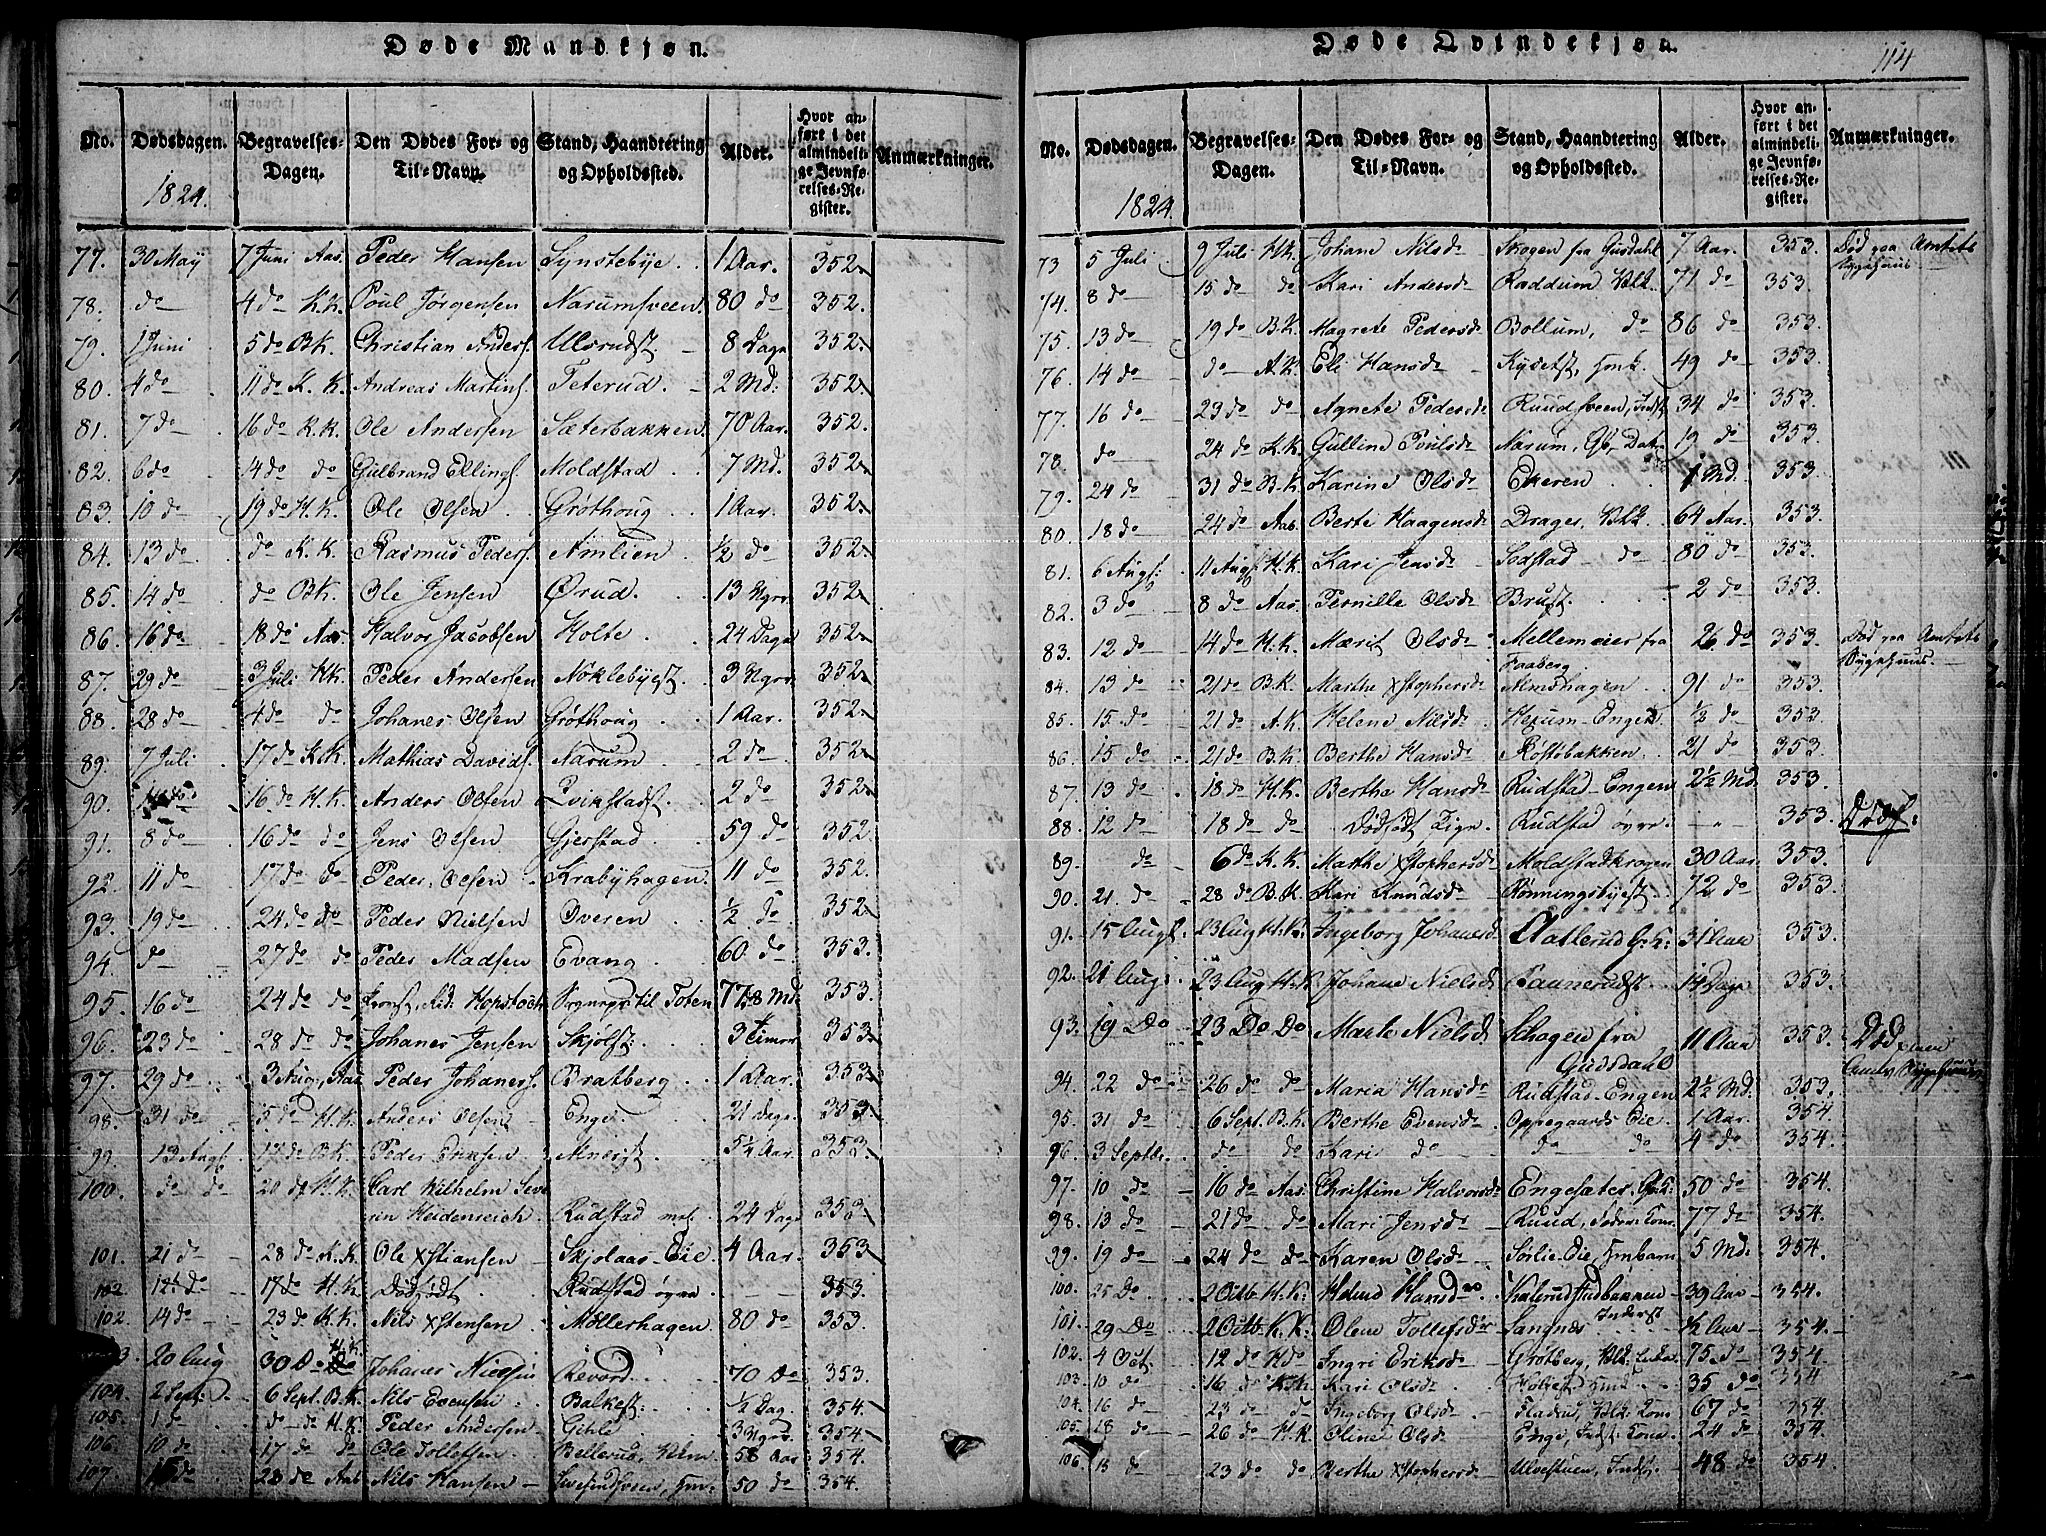 Døde Mandkjøn.
No. Dødsdagen. Begravelses-Dagen. Den Dødes For- og Til-Navn. Stand, Haandtering og Opholdssted. Alder. Hvor anført i det almindelige Jevnførelses-Register. Anmærkninger.
1824.
77. 30 May 7 Juni Aas. Peder Hansen Synstebye. 1 Aar. 352.
78. do 4 do K.K. Poul Jørgensen Narumsveen. 80 do 352.
79. 1 Juni 5 do B.K. Christian Anders. Ulsrudst. 8 Dage 352.
80. 4 do 11 do K.K. Andreas Martins. Teterud. 2 Md: 352.
81. 7 do 16 do K.K. Ole Andersen Sæterbakken. 70 Aar. 352.
82. 6 do 4 do do Gulbrand Ellings. Moldstad 7 Md. 352.
83. 10 do 19 do H.K. Ole Olsen Grøthoug 1 Aar. 352.
84. 13 do do K.K. Rasmus Peders. Amlien ½ do 352.
85. 14 do do B.K. Ole Jensen Ørud. 13 Ugr. 352.
86. 16 do 18 do Aas. Halvor Jacobsen Holte. 24 Dage 352.
87. 29 do 3 Juli H.K. Peder Andersen Nøklebyest. 3 Ugr. 352.
88. 28 do 4 do do Johanes Olsen Grøthoug 1 Aar. 352.
89. 7 Juli 17 do K.K. Mathias Davids. Narum 2 do 352.
90. 16 do H.K. Anders Olsen 2 do 352.
91. 8 do 16 do do Jens Olsen Gjerstad. 59 do 352.
92. 11 do 17 do do Peder Olsen Krabyhagen. 11 do 352.
93. 19 do 24 do do Peder Nielsen Overen ½ do 352.
94. do 27 do do Peder Madsen Evang 60 do 353.
95. 16 do 24 do do Hopstock til Toten 77. 8 Md. 353.
96. 23 do 28 do do Johanes Jensen Skjølst: 3 Timer 353.
97. 29 do 3 Aug. Aas Peder Johanes. Bratberg 1 Aar. 353.
98. 31 do 5 do H.K. Anders Olsen Enge. 21 Dage 353.
99. 13 Augs. do B.K. Peder Eriksen 5½ Aar. 353.
100. do do 20 do H.K. Carl Wilhelm Severin Heidenreich. Rudstad 24 Dage 353.
101. 21 do 28 do K.K. Ole Xstiansen Skjølaas-Eie 4 Aar. 353
102. do 17 do H.K. Dødfødt Rudstad øvre 353.
102. 14 do 23 do K.K. Nils Xstensen Møllerhagen. 80 do 353.
20 Aug 30 Do Johanes Revord. 70 Do 353.
104. 2 Sept. 6 Sept. B.K. Nils Evensen Balkest. ½ Dag. 354.
105. 1 do do do H.K. Peder Andersen Gihle 3 Ugr. 354.
106. 10 do 17 do do Ole Tollefsen Bellerud, 58 Aar 354.
107. 15 do 23 do Aas Nils Hansen 50 do 354.
Døde Qvindekjøn.
114
No. Dødsdagen. Begravelses-Dagen. Den Dødes For- og Til-Navn. Stand, Haandtering og Opholdssted. Alder. Hvor anført i det almindelige Jevnførelses-Register. Anmærkninger.
1824.
73 5 Juli 9 Juli H.K. Johane Nilsd. Skogen fra Gusdahl 7 Aar. 353. Død paa Amtets Sygehuus
74. 8 do 15 do do Kari Andersd. Raddum 71 do 353.
75. 13 do 19 do B.K. Magrete Pedersd. Bollum, do 86 do 353.
76. 14 do do A.K. Eli Hansd. Kysetst, 49 do 353.
77. 16 do 23 do do Agnete Pedersd. Ruudsveen, Indst 34 do 353.
78. do 24 do K.K. Gulline Poulsd. Narum, 19 do 353.
79. 24 do 31 do B.K. Karine Olsd. Ekeren 1 Md. 353.
80. 18 do 24 do Aas. Berte Haagensd. Drager, 64 Aar. 353.
81. 6 Augs. 11 Augs. H.K. Kari Jensd. Sodstad do 80 do 353.
82. 3 do 8 do Aas. Pernille Olsd. Brust. 2 do 353.
83. 12 do 14 do H.K. Mærit Olsd. Mellemeier fra Faaberg. 26 do 353. Død paa Amtets Sygehuus.
84. 13 do 21 do B.K. Marthe Xstophersd. Almshagen 91 do 353.
85. 15 do 21 do A.K. Helene Nilsd. Hexum-Enger ½ do 353.
86. 15 do 21 do B.K. Berthe Hansd. Røstøbakken 21 do 353.
87. 13 do 18 do H.K. Berthe Hansd. Rudstad Engen 2½ Md. 353.
88. 12 do 18 do do Dødfødt Rudstad øvre 353. Dødf.
89. do 6 do K.K. Marthe Xstophersd. Moldstadkrogen 30 Aar. 353.
90. 21. do 28 do B.K. Kari Knudsd. Rønningsbyest 72 do 353.
91. 15 Augt. 23 Aug H.K. Ingeborg Johansd. 31 Aar 353.
92. 21 Aug. 23 Aug H.K. Johane Nielsd. 14 Dage 353.
93. 19 Do 23 Do Do Marte Nielsd. Schogen fra Gudsdahl 11 Aar 353. Død paa
94. 22 do 26 do do Maria Hansd. Rudstad-Engen 2½ Md. 353.
95. 31 do 6 Sept. B.K. Berthe Evensd. Oppegaards Eie 1 Aar. 354.
96. 3 Septb. do do Kari do do do 4 do 354.
97. 10 do 16 do Aas. Christine Halvorsd. Engesæter. 50 do 354.
98. 13 do 21 do do Mari Jensd. Ruud, 77 do 354.
99. 19 do 24 do do Karen Olsd. Sørlie-Eie, 5 Md. 354.
100. 25 Do 2 Octb. H.K. Helene Hansd. 39 Aar 354.
101. 29 Do 2 Octb. K.K. Olene Tollefsd. Sangnæs Inderst ½ Aar 354.
102. 4 Oct. 12 do do Ingri Eriksd. Grøtberg, 75 do 354.
103. 10 do 16 do K.K. Kari Olsd. 35 do 354
104. 16 do 23 do do Ingeborg Olsd. Fladrud, 67 do 354.
105. 18 do 26 do H.K. Oline Olsd. Enge, Indst. 24 do 354.
106. 18 do 23 do do Berthe Xstophersd. Ulvestuen, 48 do 354.